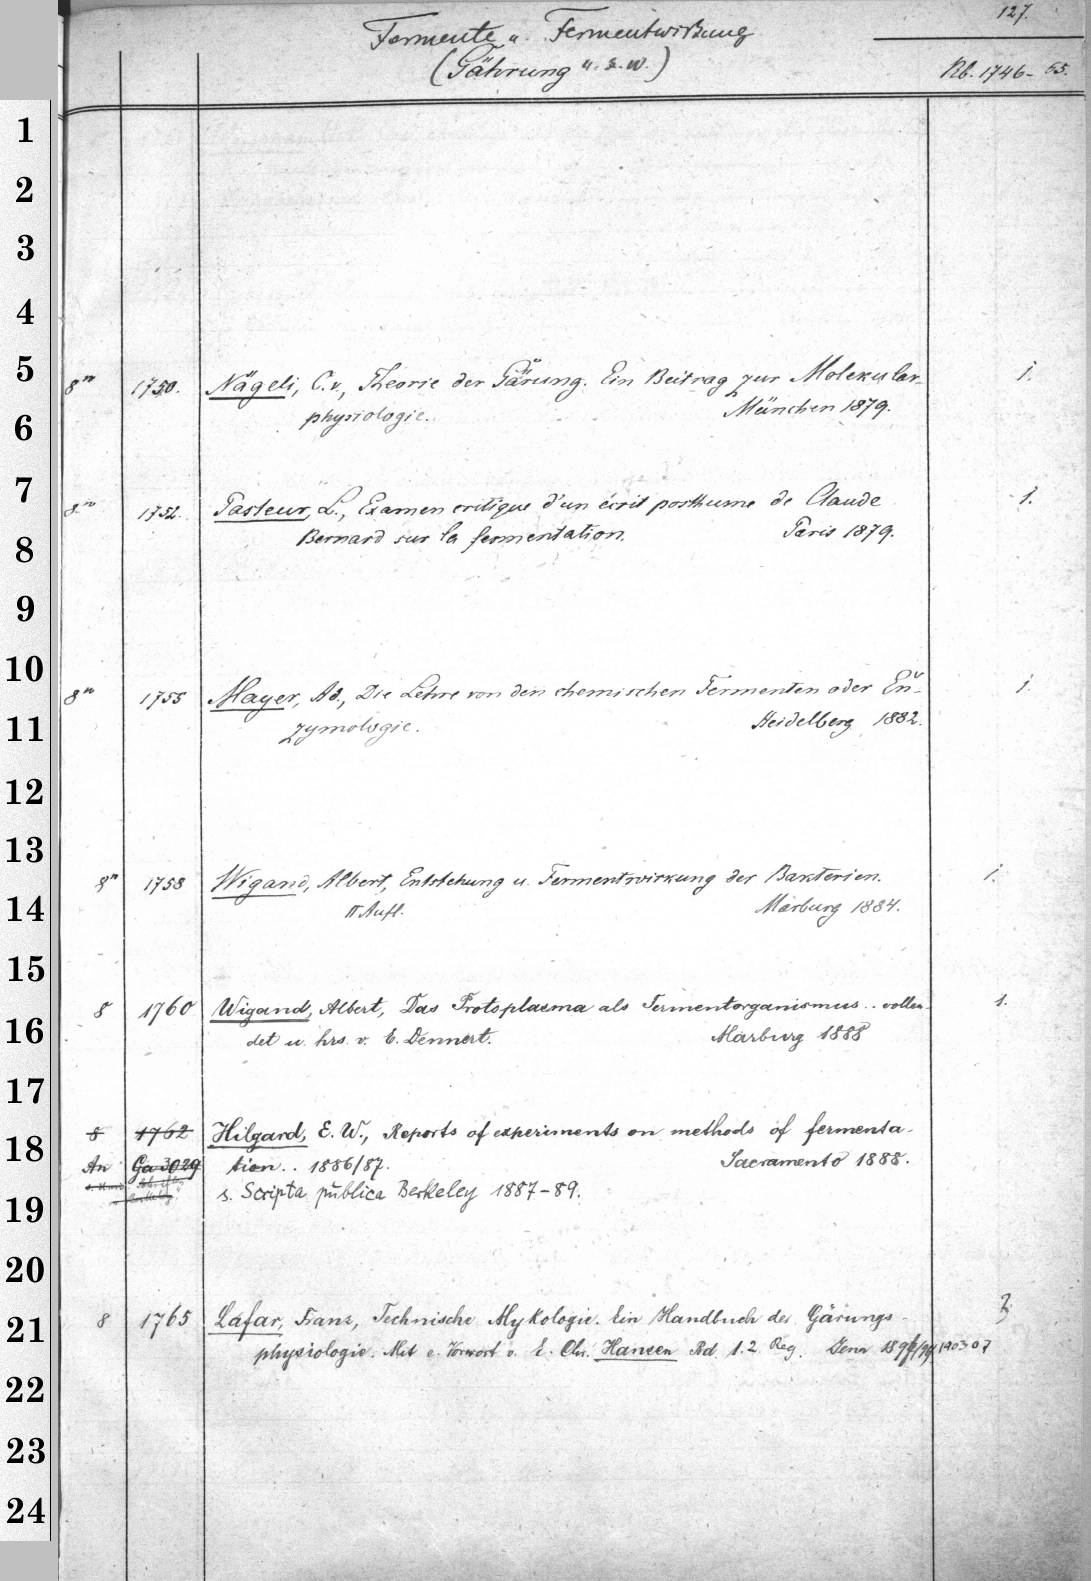 127.
Fermente u. Fermentwirkung
(Gährung u.s.w.)
Nb. 1746-65.
1
2
3
4
5
8º 1750. Nägeli, C. v., Theorie der Gärung. Ein Beitrag zur Molekular- 1.
6
physiologie. München 1879.
7
8º 1752. Pasteur, L., Examen critique d'un écrit posthume de Claude 1.
8
Bernard sur la fermentation. Paris 1879.
9
10
8º 1755 Mayer, Ad., Die Lehre von den chemischen Fermenten oder En- 1.
11
zymologie. Heidelberg 1882.
12
13
8º 1758 Wigand, Albert, Entstehung u. Fermentwirkung der Bakterien. 1.
14
II Aufl. Marburg 1884.
15
8 1760 Wigand, Albert, Das Protoplasma als Fermentorganismus.. vollen- 1.
16
det u. hrs. v. E. Dennert. Marburg 1888
17
8 1762 Hilgard, E. W., Reports of experiments on methods of fermenta-
18
An Ga 3029 tion.. 1886/87. Sacramento 1888.
19
s. Scripta publica Berkeley 1887-89.
20
8 1765 Lafar, Franz, Technische Mykologie. Ein Handbuch der Gärungs- 3
21
physiologie. Mit e. Vorwort v. E. Chr. Hansen Bd. 1.2 Reg. Jena 1897/99 1903-07
22
23
24